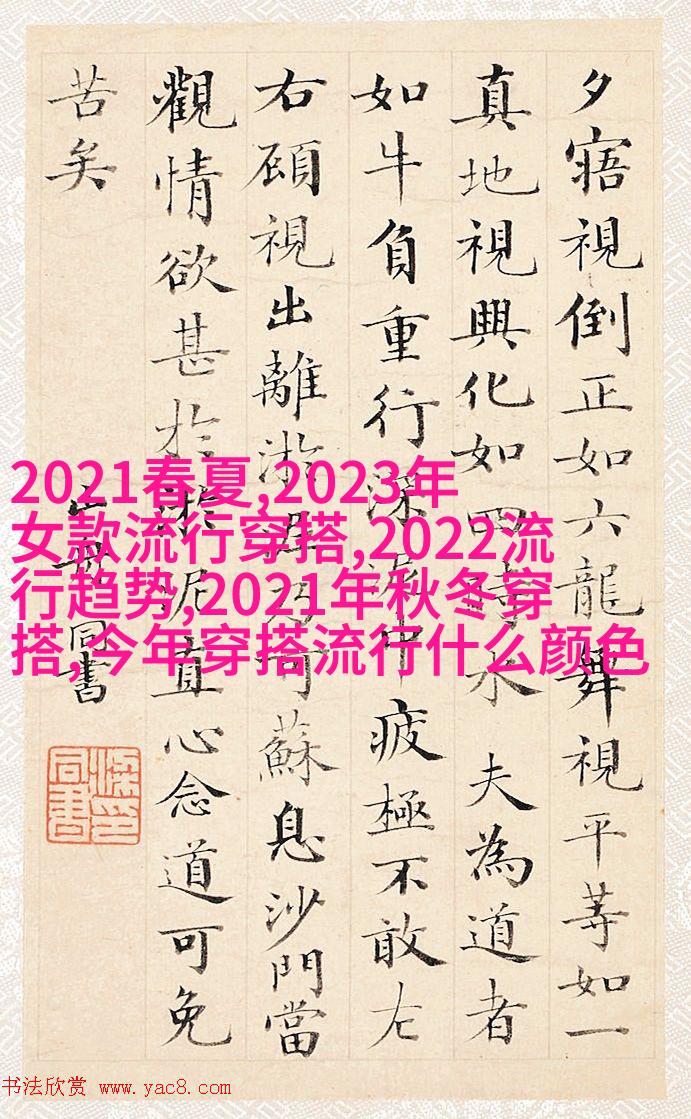 夕寤視倒正如六龍舞視平等如一
真地視興化如四時木 夫為道者
如牛負重行深泥中疲極不敢左
右顧視出離淤泥乃可蘇息沙門當
觀情欲甚於淤泥直心念道可免
苦矣
同書
2021春夏,2023年
女款流行穿搭,2022流
行趋势,2021年秋冬穿
搭,今年穿搭流行什么颜色
书法欣赏 www.yac8.com